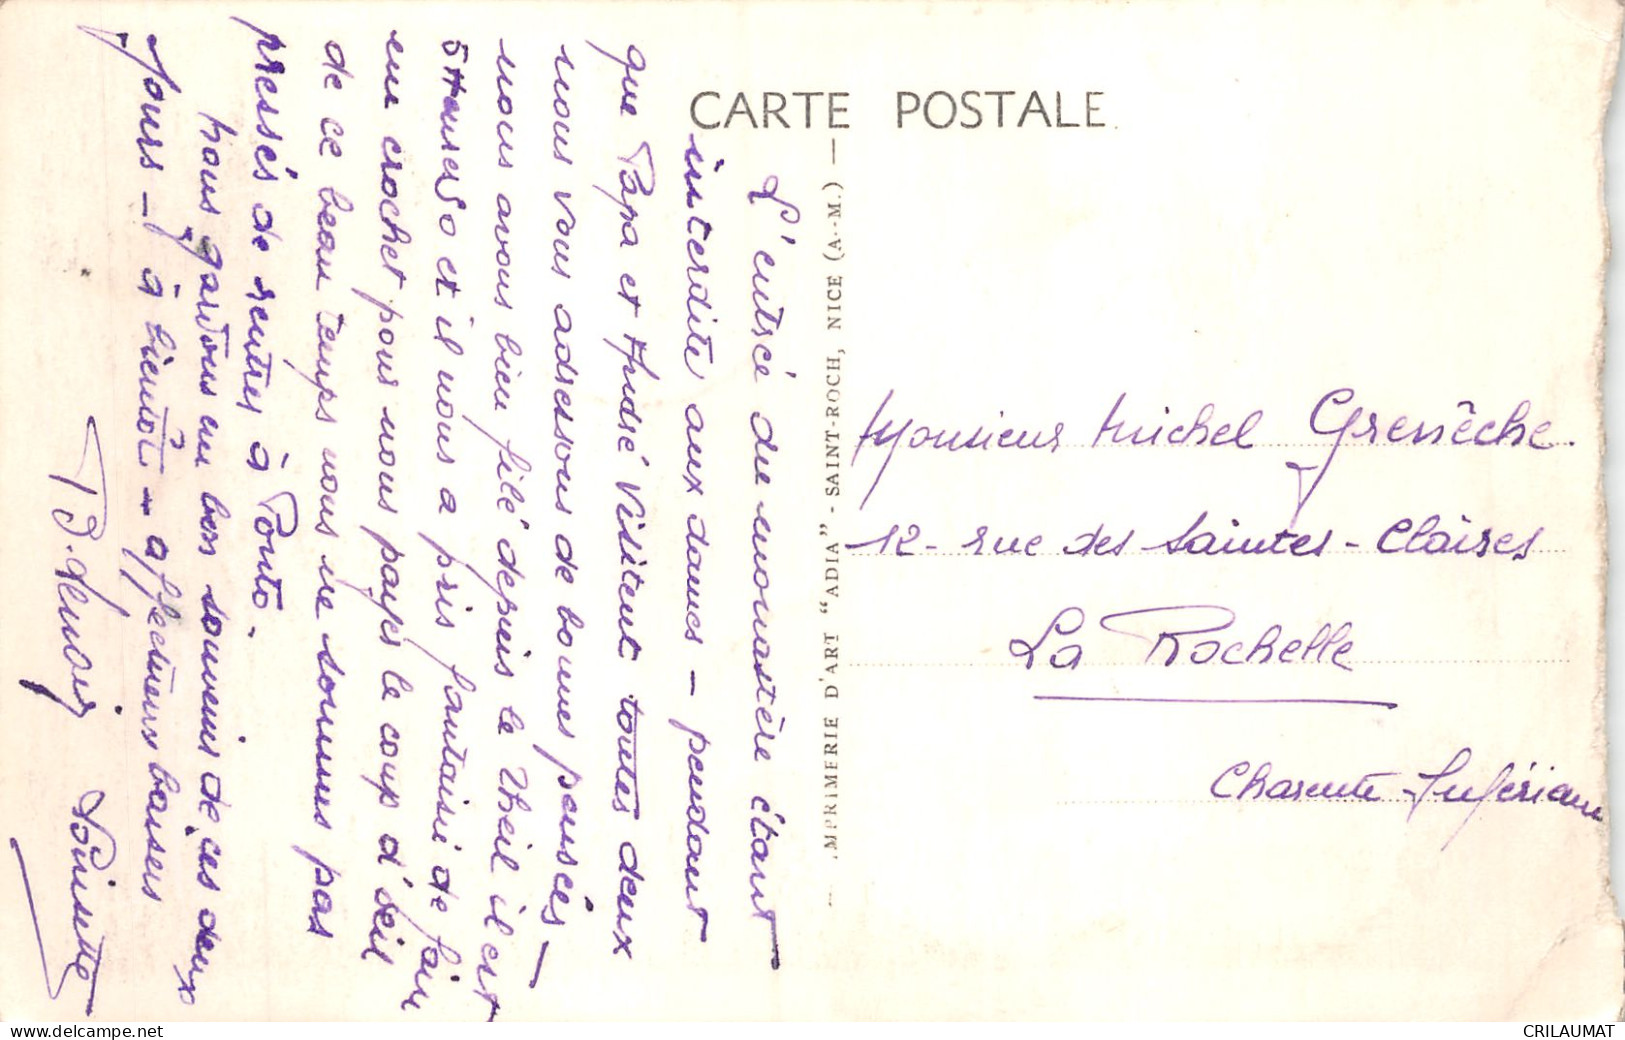 CARTE POSTALE
L'entrée du monastère étant
interdite aux dames - pendant
que Papa et André visitent toutes deux
nous vous adressons de bonnes pensées -
nous avons bien filé depuis le Theil il est
5 Heures 50 et il nous a pris fantaisie de faire
un crochet pour nous payer le coup d'œil
de ce beau temps nous ne sommes pas
pressés de rentrer à Ponto.
nous gardons un bon souvenir de ces deux
jours - à bientôt - affectueux baisers
IMPRIMERIE D'ART "ADIA" - SAINT-ROCH, NICE (A.-M.) -
Monsieur Michel Grenêche.
12 - rue des Saintes - Claires
La Rochelle
Charente Inférieure
www.delcampe.net
CRILAUMAT